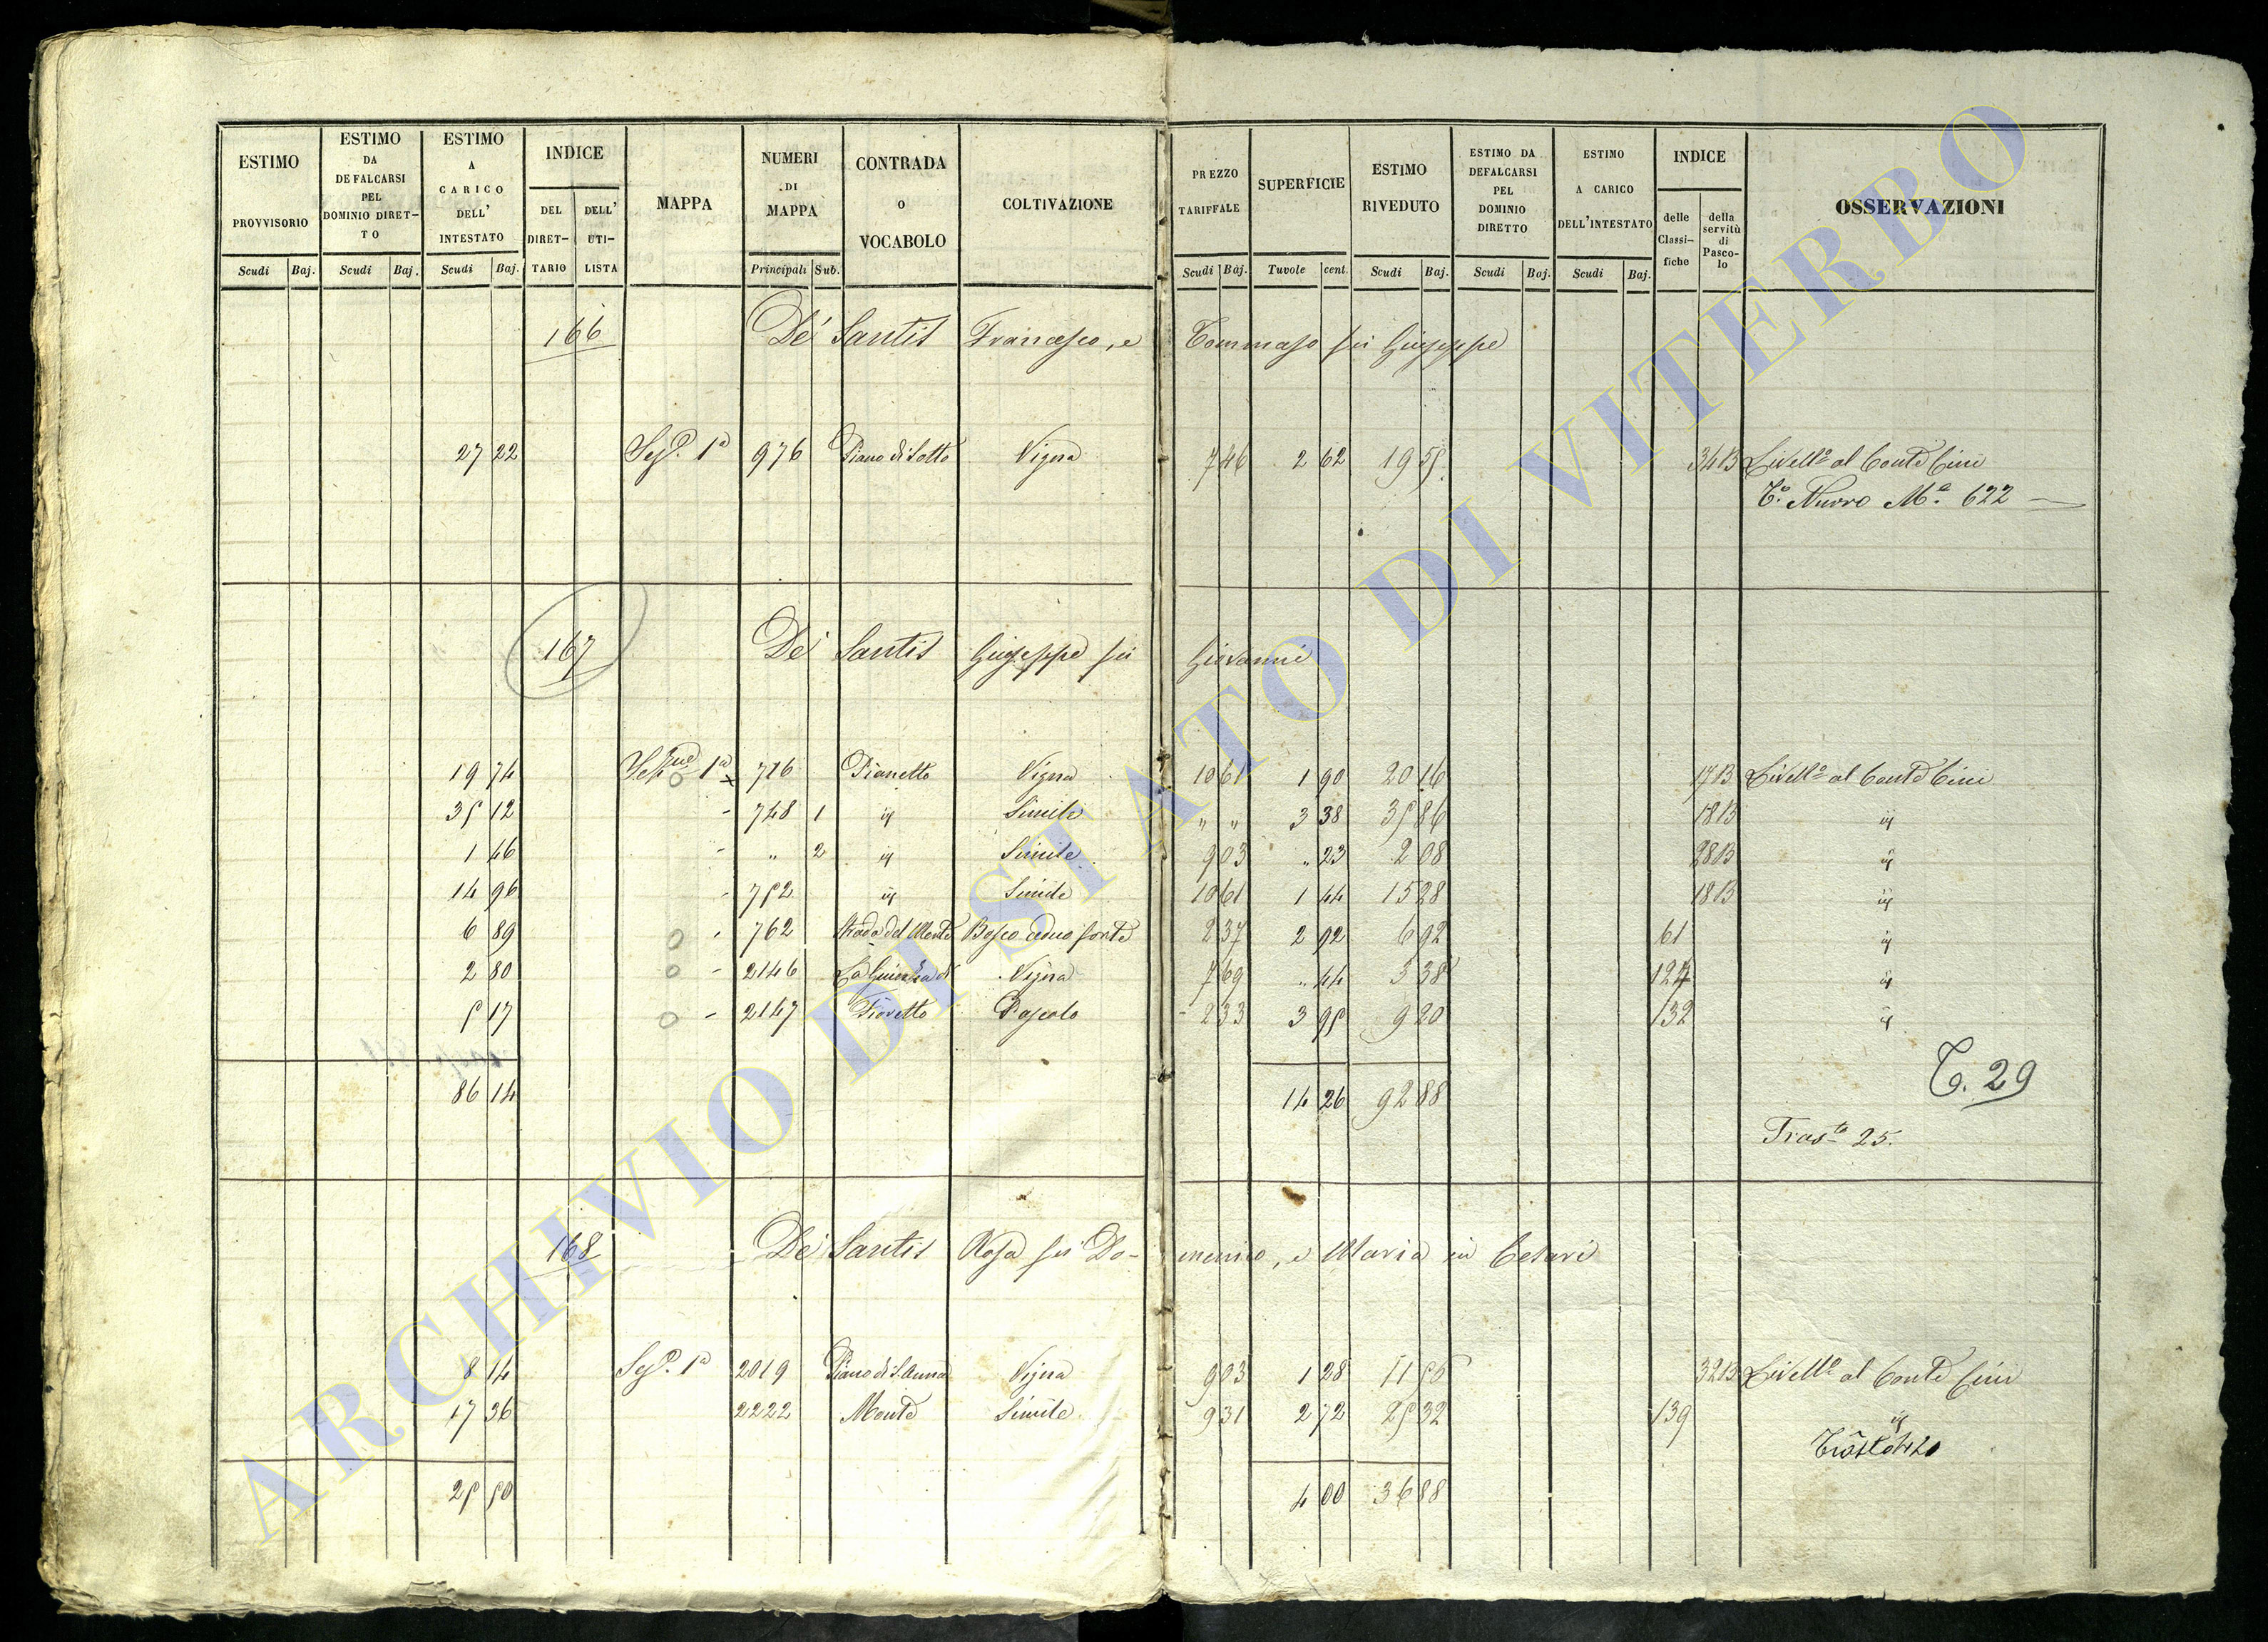 ESTIMO PROVVISORIO Scudi Baj.
ESTIMO DA DEFALCARSI PEL DOMINIO DIRET- TO Scudi Baj.
ESTIMO A CARICO DELL' INTESTATO Scudi Baj.
INDICE DEL DIRET- TARIO DELL' UTI- LISTA
MAPPA
NUMERI DI MAPPA Principali Sub.
CONTRADA O VOCABOLO
COLTIVAZIONE
PREZZO TARIFFALE Scudi Baj.
SUPERFICIE Tuvole cent.
ESTIMO RIVEDUTO Scudi Baj.
ESTIMO DA DEFALCARSI PEL DOMINIO DIRETTO Scudi Baj.
ESTIMO A CARICO DELL'INTESTATO Scudi Baj.
INDICE delle Classi- fiche della servitù di Pasco- lo
OSSERVAZIONI
166 De' Santis Francesco, e Tommaso fu Giuseppe
27 22 1ª 976 Piano di Sotto Vigna 7 46 2 62 19 55 34B Livellº al Conte Cini
Tº Nuovo Mª 622
167 De' Santis Giuseppe fu Giovanni
19 74 1ª 716 Pianetto Vigna 10 61 1 90 20 16 17B Livellº al Conte Cini
35 12 748 1 id Simile " " 3 38 35 86 18B id
1 46 " 2 id Simile 9 03 " 23 2 08 28B id
14 96 752 id Simile 10 61 1 44 15 28 18B id
6 89 762 Strada del Monte Bosco ceduo forte 2 37 2 92 6 92 61 id
2 80 2146 Vigna 7 69 " 44 3 38 124 id
5 17 2147 Fioretto Pascolo 2 33 3 95 9 20 132 id
86 14 14 26 92 88
T. 29
Trasto 25.
168 De' Santis Rosa fu Do- menico, e Maria in Cesari
8 14 1ª 2019 Piano di S. Anna Vigna 9 03 1 28 11 56 32B Livellº al Conte Cini
17 36 2222 Monte Simile 9 31 2 72 25 32 139 id
25 50 4 00 36 88
ARCHIVIO DI STATO DI VITERBO